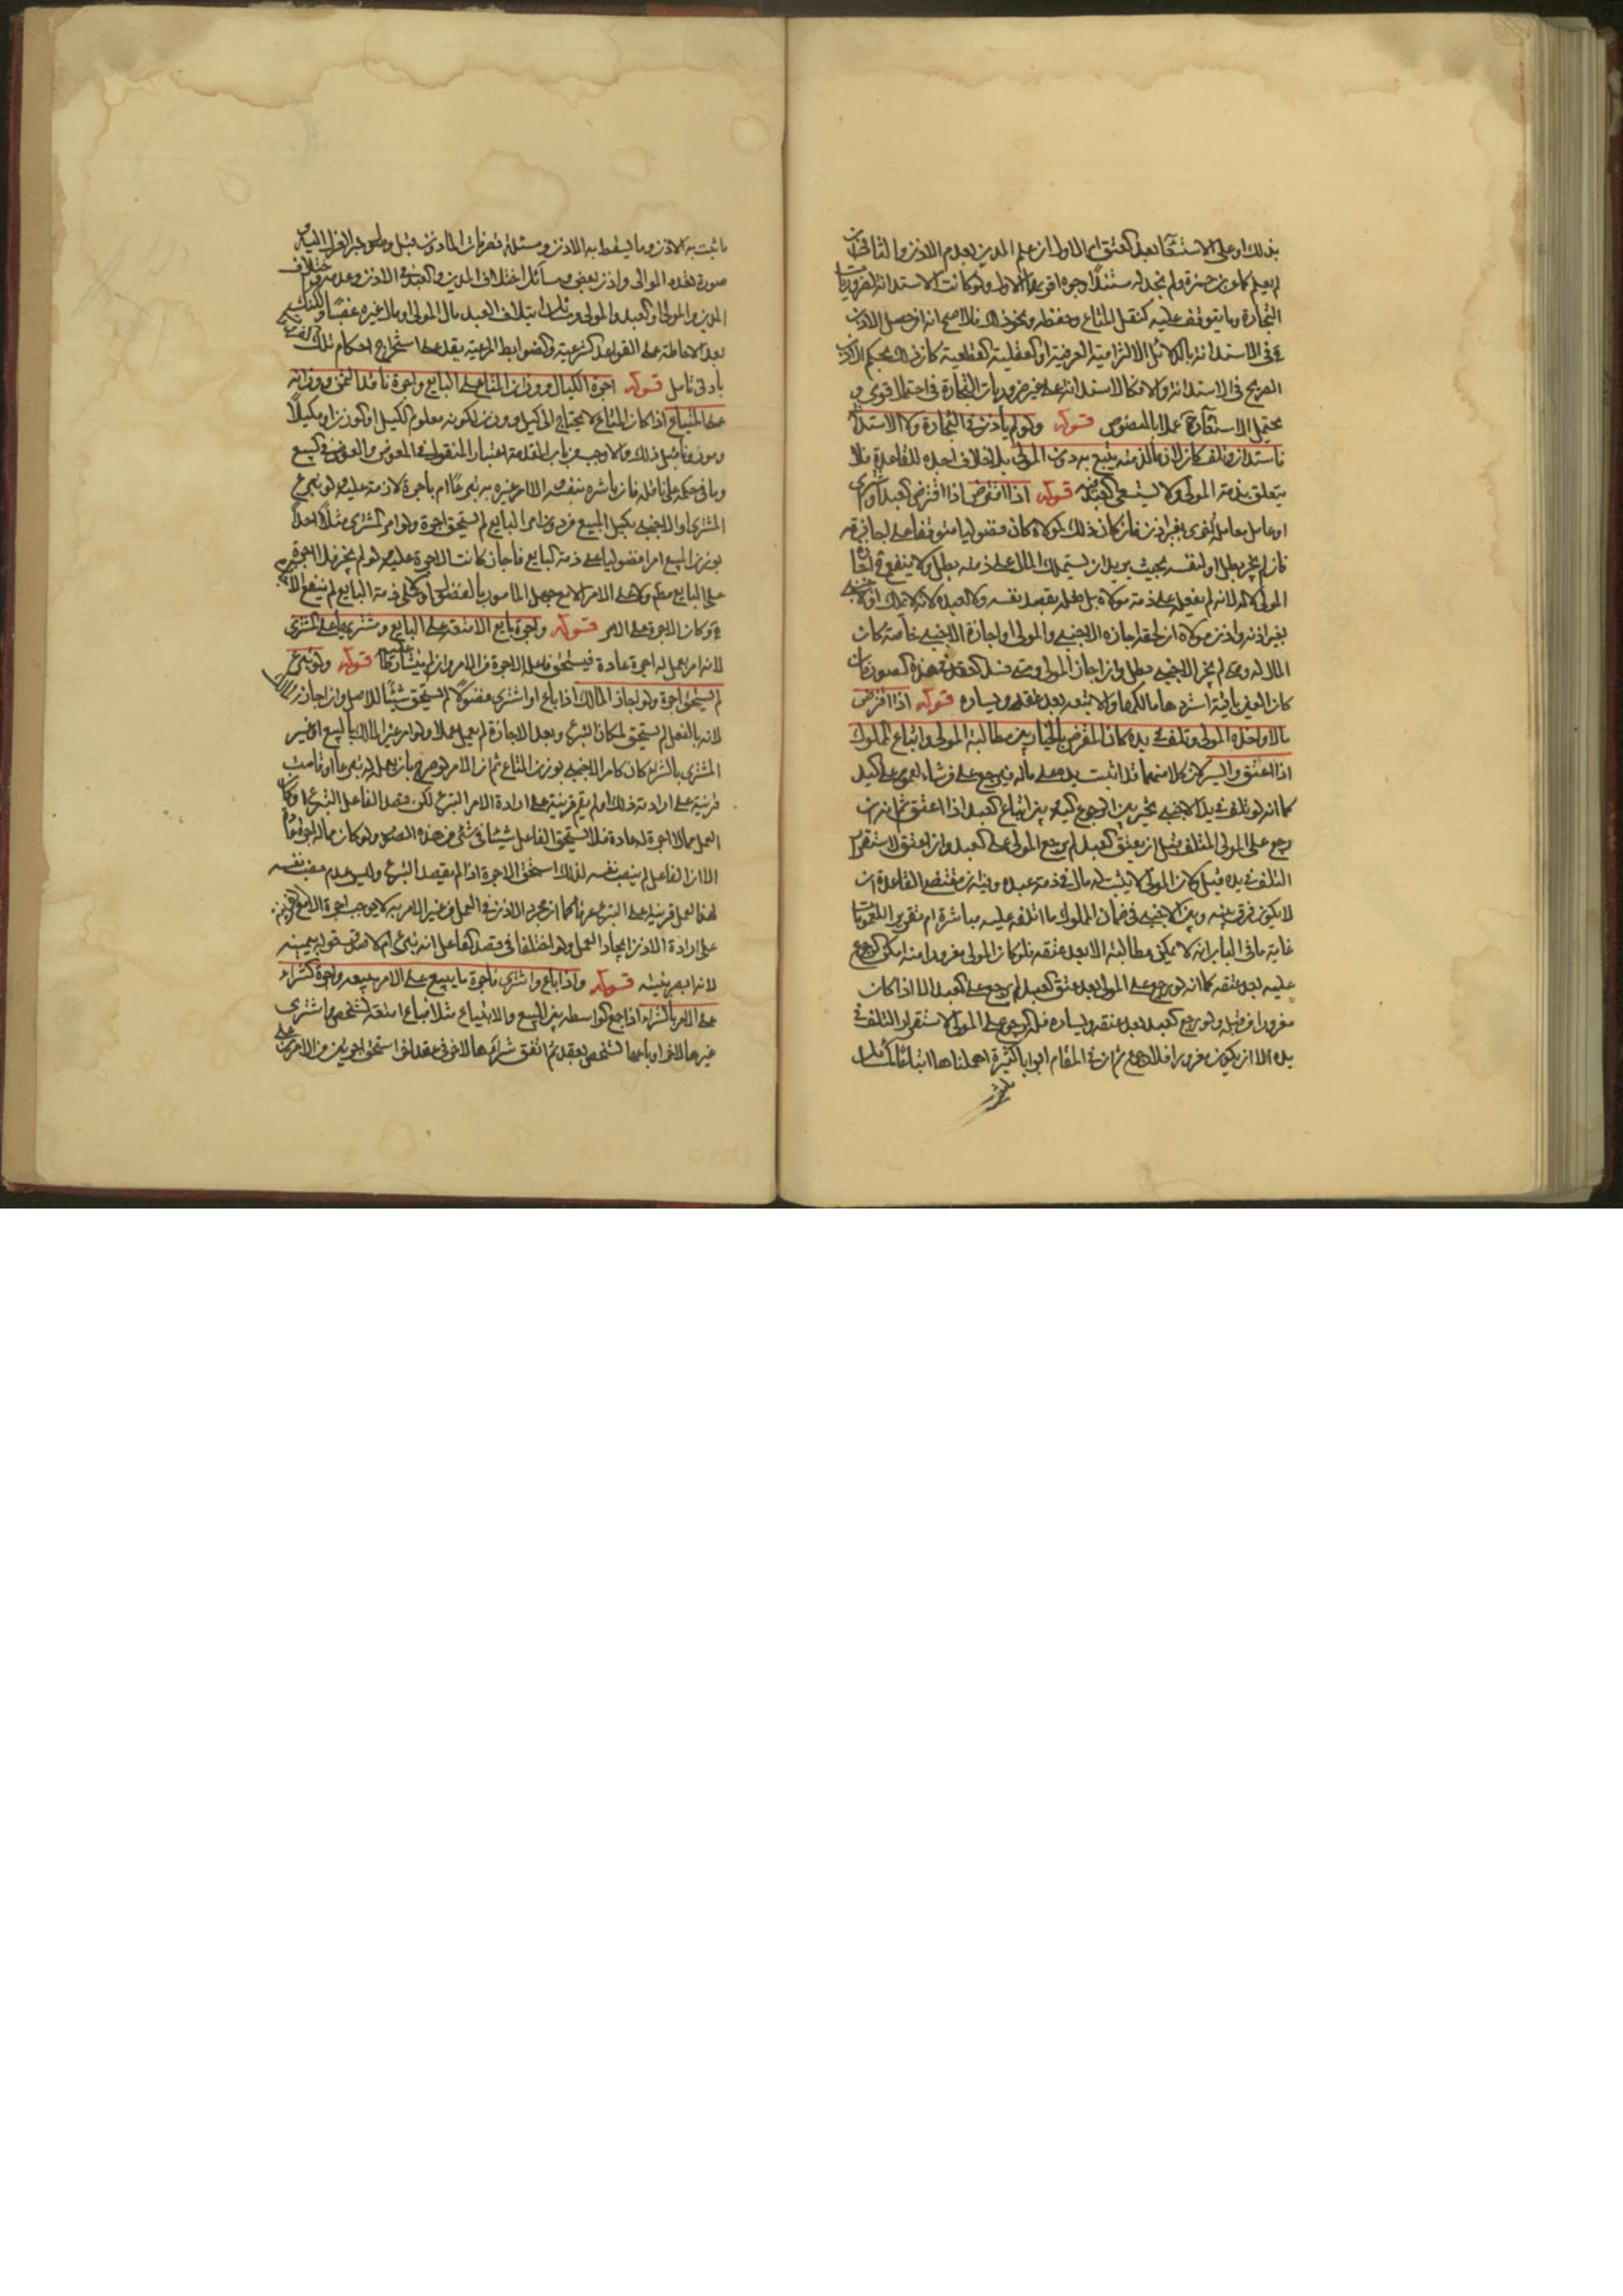 بذلك او على الاستسعاء بعد العتق الاول ان علم المدين بعدم الاذن والثانى ان
لم يعلم كما وبن حمزة ولم نجد له مستندا وجوه اقويها الاول ولو كانت الاستدانة لضروريات
التجارة وما يتوقف عليه كنقل المتاع وحفظه ونحو ذلك فالاصح انه ان حصل الاذن
فى الاستدانة بالدلائل الالتزامية العرفية او العقلية القطعية كان ذلك بحكم الاذن
الصريح فى الاستدانة والا فكالاستدانة على غير ضروريات التجارة فى احتمال قوى و
يحتمل الاستسعاء ح عملا بالمنصوص قوله ولو لم يأذن فى التجارة ولا الاستدانة
فاستدان وتلف كان لازما لذمته يتبع به دون المولى بلا خلاف اجده للقاعدة فلا
يتعلق بذمة المولى ولا يستسعى العبد فيه قوله اذا اقترض اذا اقترض العبد او اشترى
او عامل معاملة اخرى بغير اذن فان كان ذلك لمولاه كان فضوليا متوقفا على اجازته
فان لم يجز بطل او لنفسه بحيث يريد ان يستملك المال على ذمته بطل ولا ينفع فيه اجازة
المولى لا له لانه لم يفعل على ذمة مولاه بل فعله بقصد نفسه ولا لعبده لانه لا يملك او لاجنبى
بغير اذنه واذن مولاه ان لحقه اجازه الاجنبى والمولى او اجازة الاجنبى خاصة كان
المال له ومتى لم يجز الاجنبى بطل وان اجاز المولى ومتى فسد العقد فى هذه الصور فان
كان العين باقية استردها مالكها والا تبعه بعد عتقه ويساره قوله اذا اقترض
مالا واخذه المولى وتلف فى يده كان المقرض بالخيار بين مطالبة المولى واتباع المملوك
اذا اعتق وايسر لان كلا منهما قد اثبت يده على ماله فيرجع على من شاء لعموم على اليد
كما انه لو تلف فى يد الاجنبى تخير بين الرجوع اليه وبين اتباع العبد اذا اعتق ثم انه ان
رجع على المولى المتلف قبل ان يعتق العبد لم يرجع المولى على العبد وان اعتق لاستقرار
التلف فى يده قيل ولان المولى لا يثبت له مال فى ذمة عبده وفيه ان مقتضى القاعدة ان
لا يكون فرق بينه وبين الاجنبى فى ضمان المملوك ما اتلفه عليه مباشرة ام تقرير اللعمومات
غاية ما فى الباب انه لا يمكن مطالبته الا بعد عتقه فلو كان المولى مغرورا منه امكن الرجوع
عليه بعد عتقه كما انه لو رجع على المولى بعد عتق العبد لم يرجع على العبد الا اذا كان
مغرورا من قبله ولو رجع العبد بعد عتقه ويساره فله الرجوع على المولى لاستقرار التلف فى
يده الا ان يكون مغرورا فلا رجوع ثم ان فى المقام ابوابا كثيرة اهملناها اتباعا للمتن
ما ثبت به الاذن وما يسقط به الاذن ومسئلة تصرفات المأذون قبل وصول خبر العزل اليه و
صورة تعدد الموالى واذن بعض ومسائل اختلاف المدين والعبد فى الاذن وعدمه واختلاف
المدين والمولى او العبد والمولى ومسائل اتلاف العبد مال المولى او مال غيره غصبا
بعد الاحاطة على القواعد الشرعية والضوابط المرعية يقدر على استخراج احكام تلك
بأدنى تأمل قوله اجرة الكيال ووزان المتاع على البايع واجرة ناقد الثمن ووزانه
على المبتاع اذا كان المتاع لا يحتاج الى كيل ووزن لكونه معلوم الكيل او الوزن او مكيلا
وموزونا قبل ذلك والاوجب من باب المقدمة اعتبار المنقول فى المعوض والعوض فى البيع
وما فى حكمه على ناقله فان باشره بنفسه والا امر غيره به تبرعا ام باجرة لازمة عليه ولو تبرع
المشترى او الاجنبى بكيل المبيع من دون امر البايع لم يستحق اجرة ولو امر المشترى مثلا احدا
بوزن المبيع امرا فضوليا على ذمة البايع فاجاز كانت الاجرة عليه ولو لم يجز فلا اجرة
على البايع مطلقا ولا على الامر الا مع جهل المامور بالفضولى
وكان الاجرة على الامر قوله واجرة بايع الامتعة على البايع ومشتريها على المشترى
لانه امر بعمل له اجرة عادة فيستحق فاعله الاجرة من الامر وان لم يتشارطا قوله ولو تبرع
لم يستحق اجرة ولو اجاز المالك اذا باع او اشترى فضولا لم يستحق شيئا للاصل وان اجاز المالك
لانه بالفعل لم يستحق لمكان التبرع وبعد الاجازة لم يعمل عملا ولو امر غير المالك بالبيع او غير
المشترى بالشراء كان كامر الاجنبى بوزن المتاع ثم ان الامر لو صرح بان يعمل له تبرعا او قامت
قرينة على ارادته ذلك او لم يقم قرينة على ارادة الامر التبرع لكن قصد الفاعل التبرع او كان
العمل مما لا اجرة له عادة فلا يستحق الفاعل شيئا فى شئ من هذه الصور ولو كان مما له اجرة
الا ان الفاعل لم ينصب نفسه لذلك استحق الاجرة اذا لم يقصد التبرع وليس عدم نصب نفسه
لهذا العمل قرينة على التبرع عرفا كما ان مجرد الاذن فى العمل من غير الامر به لا يوجب اجرة الا مع القرينة
على ارادة الاذن ايجاد العمل ولو اختلفا فى قصد الفاعل انه تبرع ام لا قدم قوله بيمينه
لانه ابصر بنيته قوله واذا باع واشترى فاجرة ما يبيع على الامر ببيعه واجرة الشراء
على الامر بالشراء اذا جمع الواسطة بين البيع والابتياع مثلا فباع امتعة لشخص واشترى
غيرها لاخر او باعها لشخص بعقد ثم اتفق شرائها لاخر فى عقد اخر استحق اجرتين من الامرين